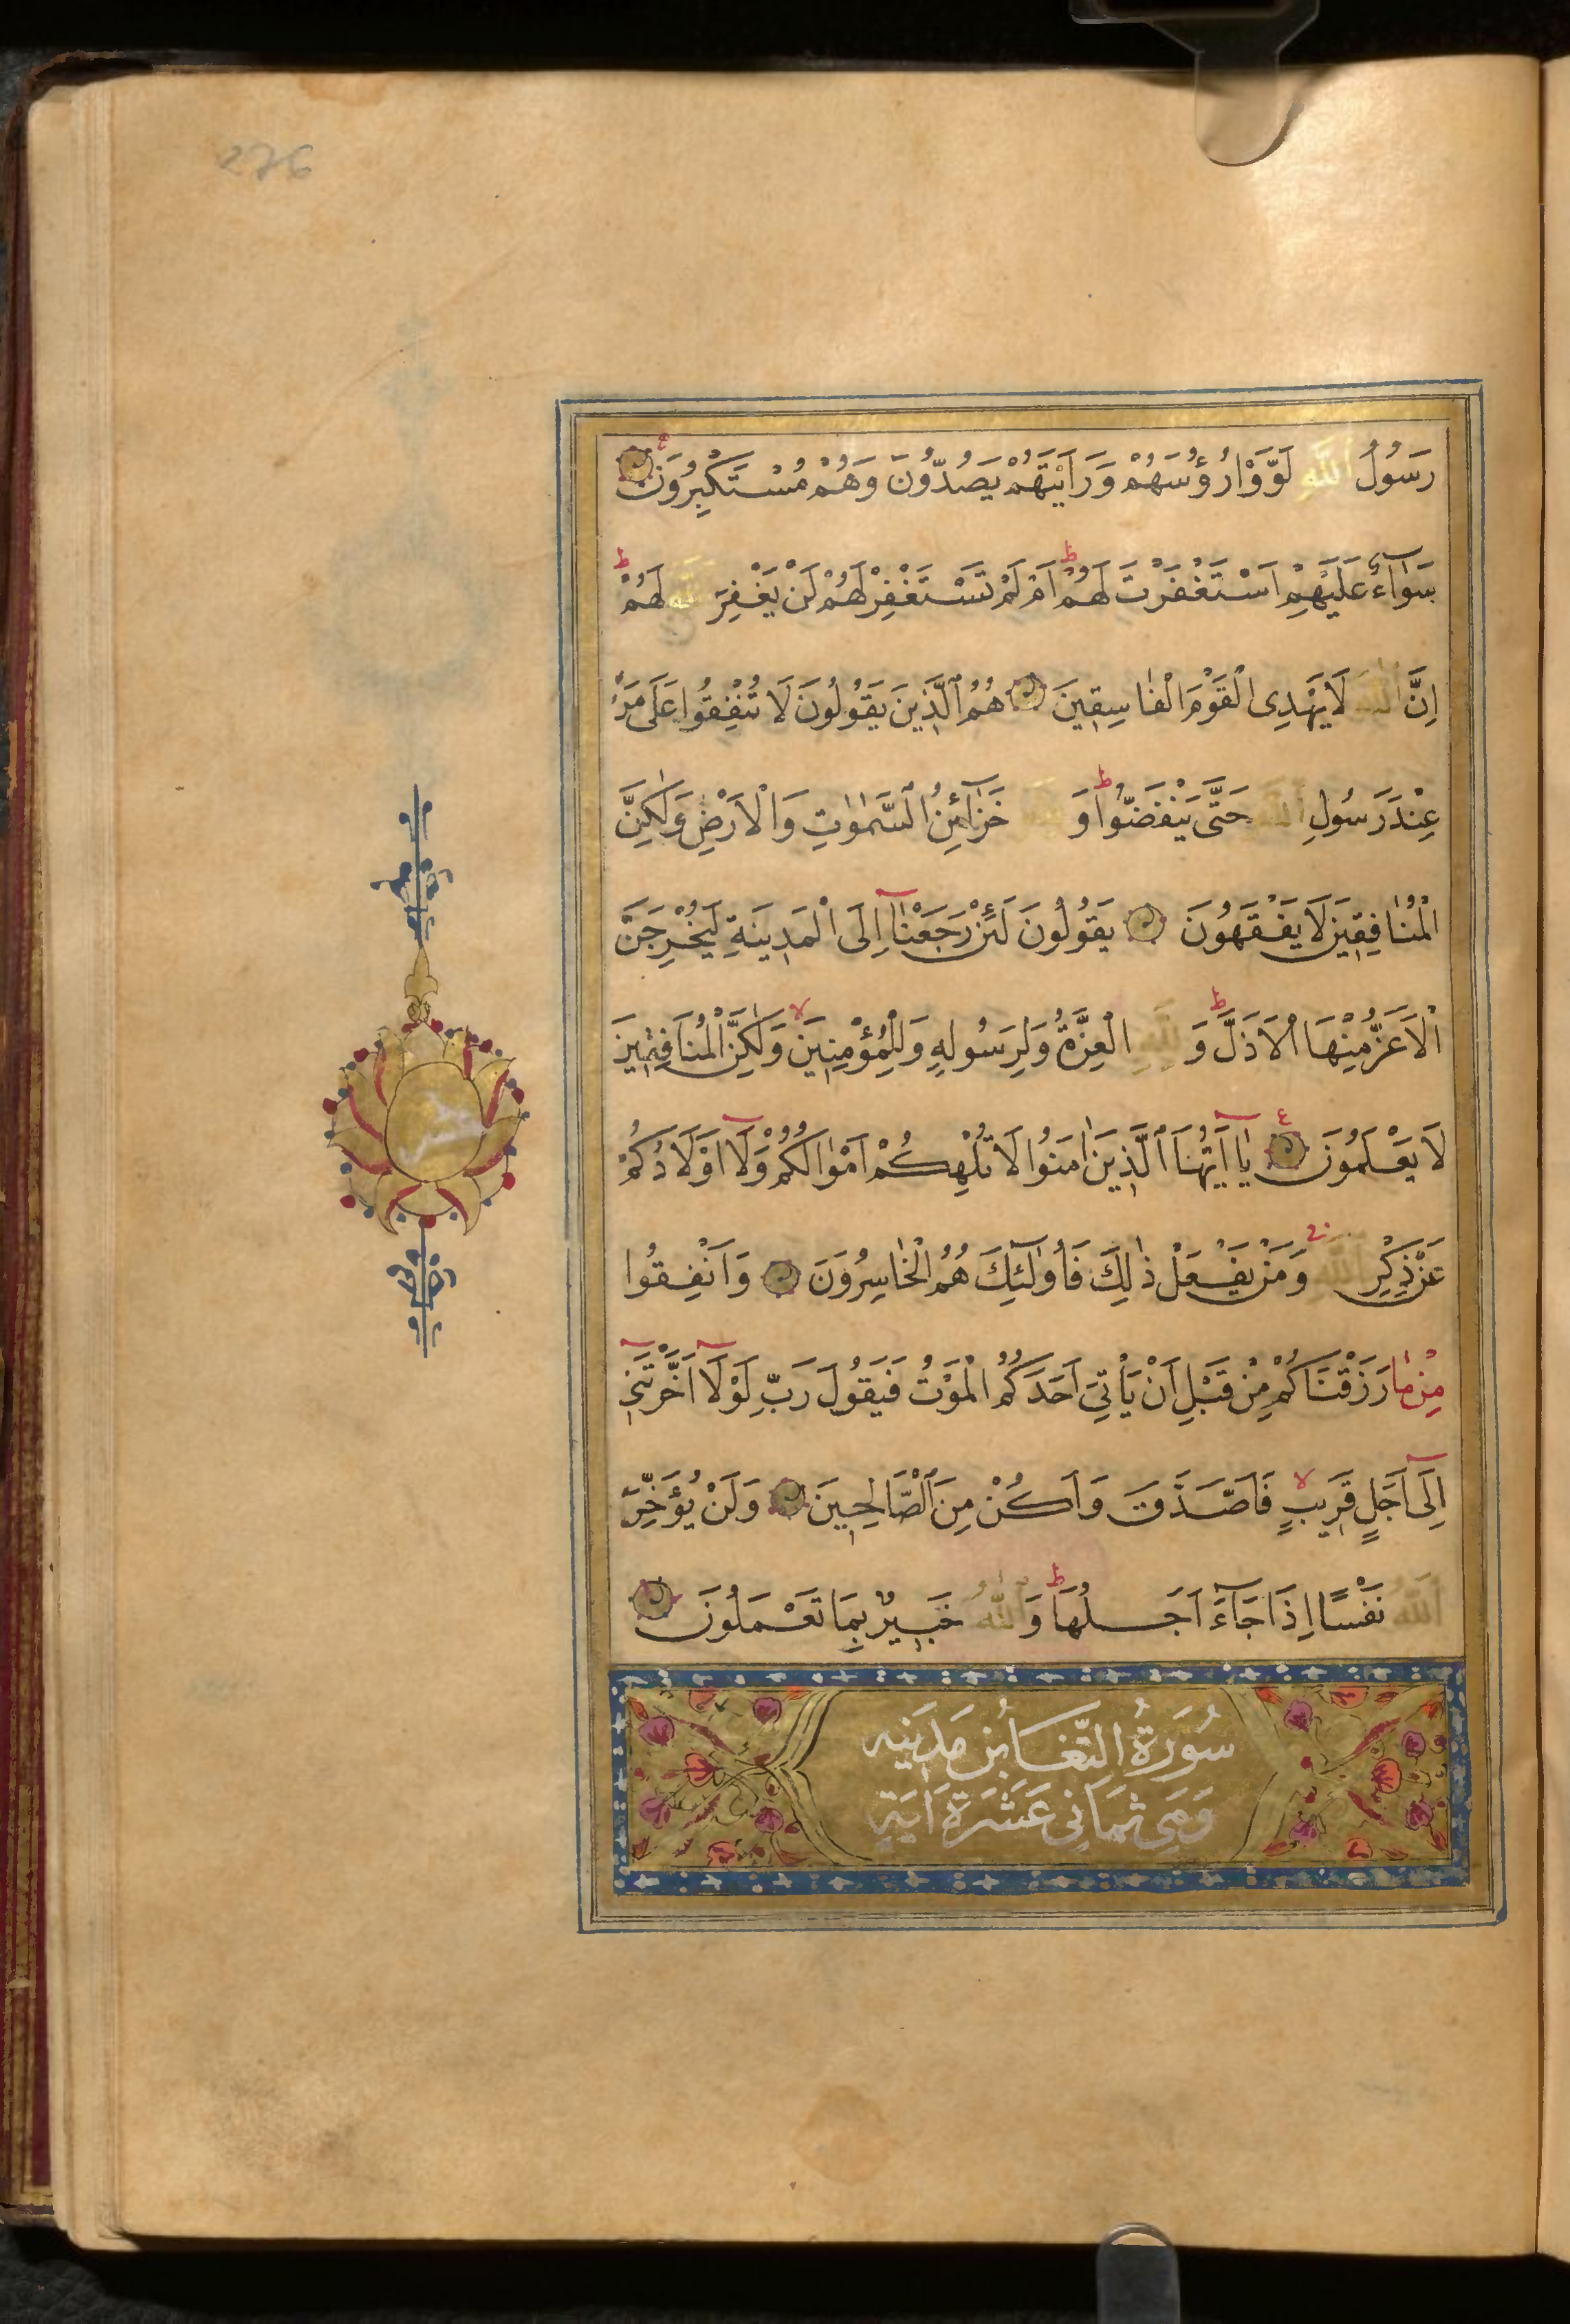 276
رَسُولُ اللّٰهِ لَوَّوْا رُؤُسَهُمْ وَرَاَيْتَهُمْ يَصُدُّونَ وَهُمْ مُسْتَكْبِرُونَ
سَوَآءٌ عَلَيْهِمْ اَسْتَغْفَرْتَ لَهُمْ ط اَمْ لَمْ تَسْتَغْفِرْ لَهُمْ لَنْ يَغْفِرَ اللّٰهُ لَهُمْ ط
اِنَّ اللّٰهَ لَا يَهْدِى الْقَوْمَ الْفٰاسِقِينَ هُمُ الَّذِينَ يَقُولُونَ لَا تُنْفِقُوا عَلَى مَنْ
عِنْدَ رَسُولِ اللّٰهِ حَتَّى يَنْفَضُّوا ط وَ خَزٰآئِنُ السَّمٰوٰتِ وَالْاَرْضِ وَلٰكِنَّ
الْمُنٰافِقِينَ لَا يَفْقَهُونَ يَقُولُونَ لَئِنْ رَجَعْنٰآ اِلَى الْمَدِينَةِ لَيُخْرِجَنَّ
الْاَعَزُّ مِنْهَا الْاَذَلَّ ط وَ لِلّٰهِ الْعِزَّةُ وَلِرَسُولِهِ وَلِلْمُؤْمِنِينَ لا وَلٰكِنَّ الْمُنَافِقِينَ
لَا يَعْلَمُونَ ع يٰآ اَيُّهَا الَّذِينَ اٰمَنُوا لَا تُلْهِكُمْ اَمْوٰالُكُمْ وَلَآ اَوْلَادُكُمْ
عَنْ ذِكْرِ اللّٰهِ ج وَمَنْ يَفْعَلْ ذٰلِكَ فَاُولٰٓئِكَ هُمُ الْخٰاسِرُونَ وَاَنْفِقُوا
مِنْ مٰا رَزَقْنَاكُمْ مِنْ قَبْلِ اَنْ يَأْتِىَ اَحَدَكُمُ الْمَوْتُ فَيَقُولَ رَبِّ لَوْلَآ اَخَّرْتَنِى
اِلَىٓ اَجَلٍ قَرِيبٍ لا فَاَصَّدَّقَ وَاَكُنْ مِنَ الصَّالِحِينَ وَلَنْ يُؤَخِّرَ
اللّٰهُ نَفْسًا اِذَا جَآءَ اَجَلُهَا ط وَاللّٰهُ خَبِيرٌ بِمَا تَعْمَلُونَ
سُورَةُ التَّغَابُنِ مَدَنِيه
وَهِىَ ثَمَانِى عَشَرَةَ اٰيَةٍ